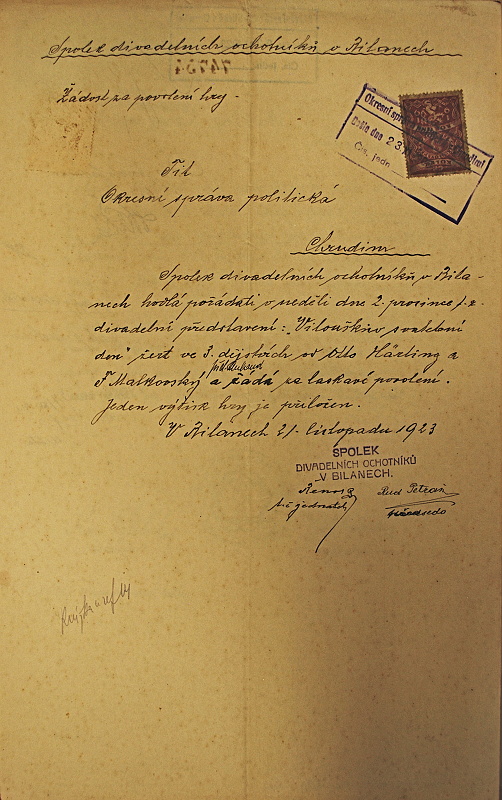 Spolek divadelních ochotníků v Bilanech
74734
Žádost za povolení hry.
Okresní spr
Došlo dne 23.
Čís. jedn.
Tit
Okresní správa politická
Chrudim
Spolek divadelních ochotníků v Bila-
nech hodlá pořádati v neděli dne 2. prosince t.r.
divadelní představení: „Vilouškův svatební
den" žert ve 3. dějstvích od Otto Härting a
F Malkovský a žádá za laskavé povolení.
Jeden výtisk hry je přiložen.
V Bilanech 21. listopadu 1923
SPOLEK
DIVADELNÍCH OCHOTNÍKŮ
V BILANECH.
Rud Petráň
t.č. jednatel